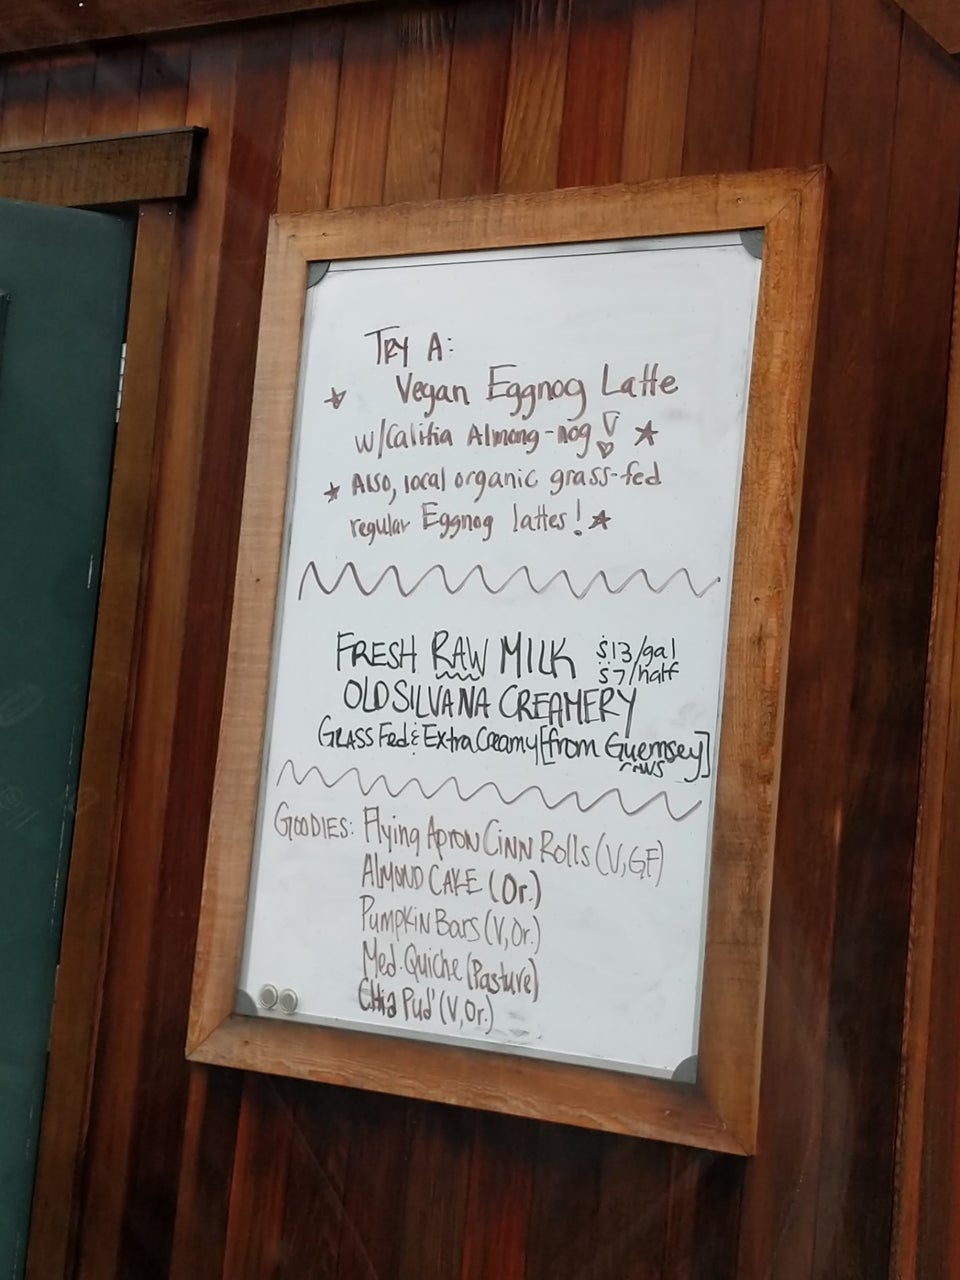 TRY A:
Vegan Eggnog Latte
w/Califia Almong-nog!
Also, local organic grass-fed
regular Eggnog lattes!
FRESH RAW MILK $13/gal
$7/half
OLD SILVANA CREAMERY
GRASS Fed & Extra Creamy [from Guernsey]
cows
GOODIES: Flying Apron Cinn Rolls (V, GF)
ALMOND CAKE (Or.)
Pumpkin Bars (V, Or.)
Med. Quiche (Pasture)
Chia Pud' (V, Or.)